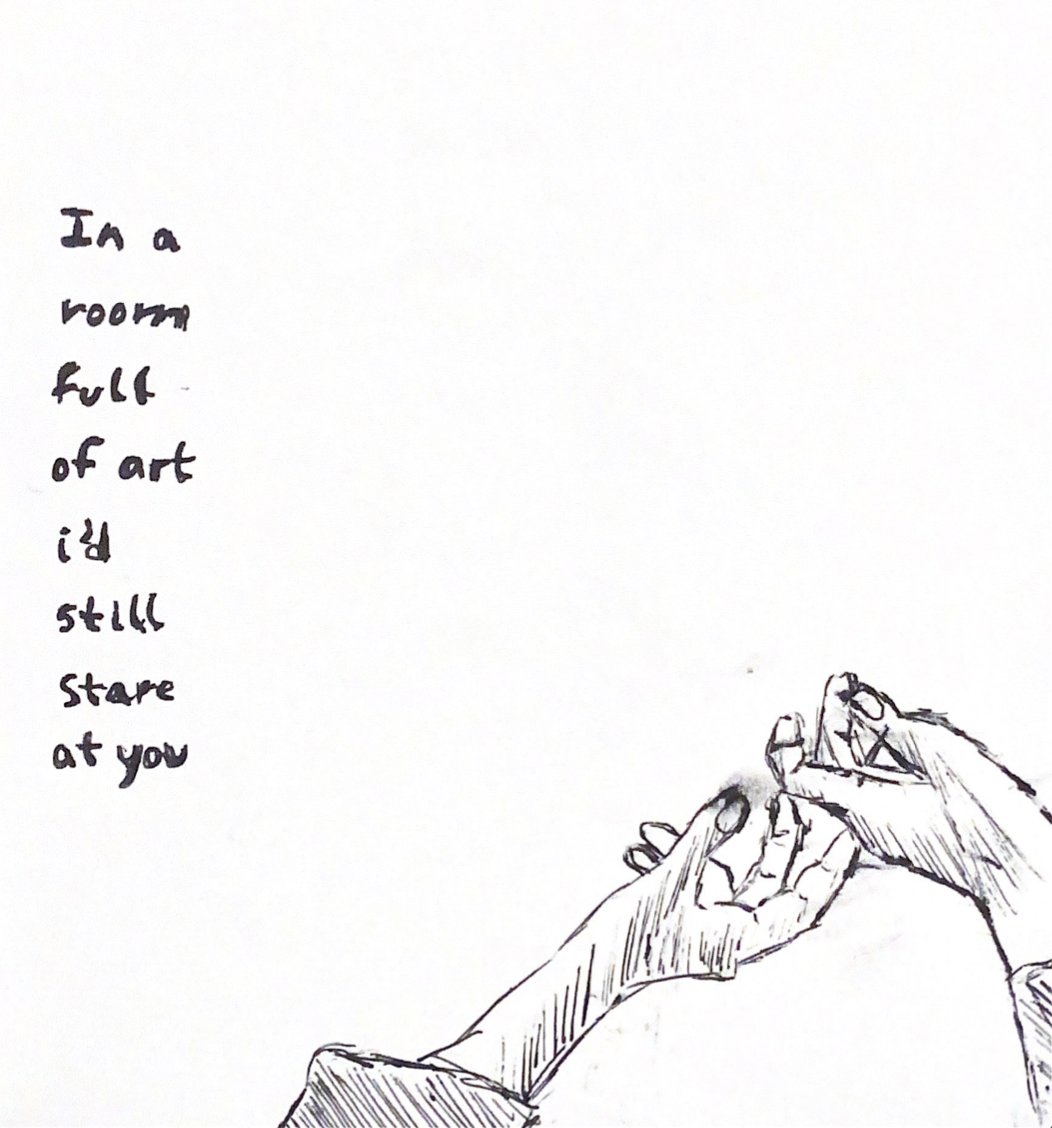 In a
room
full
of art
i'd
still
stare
at you